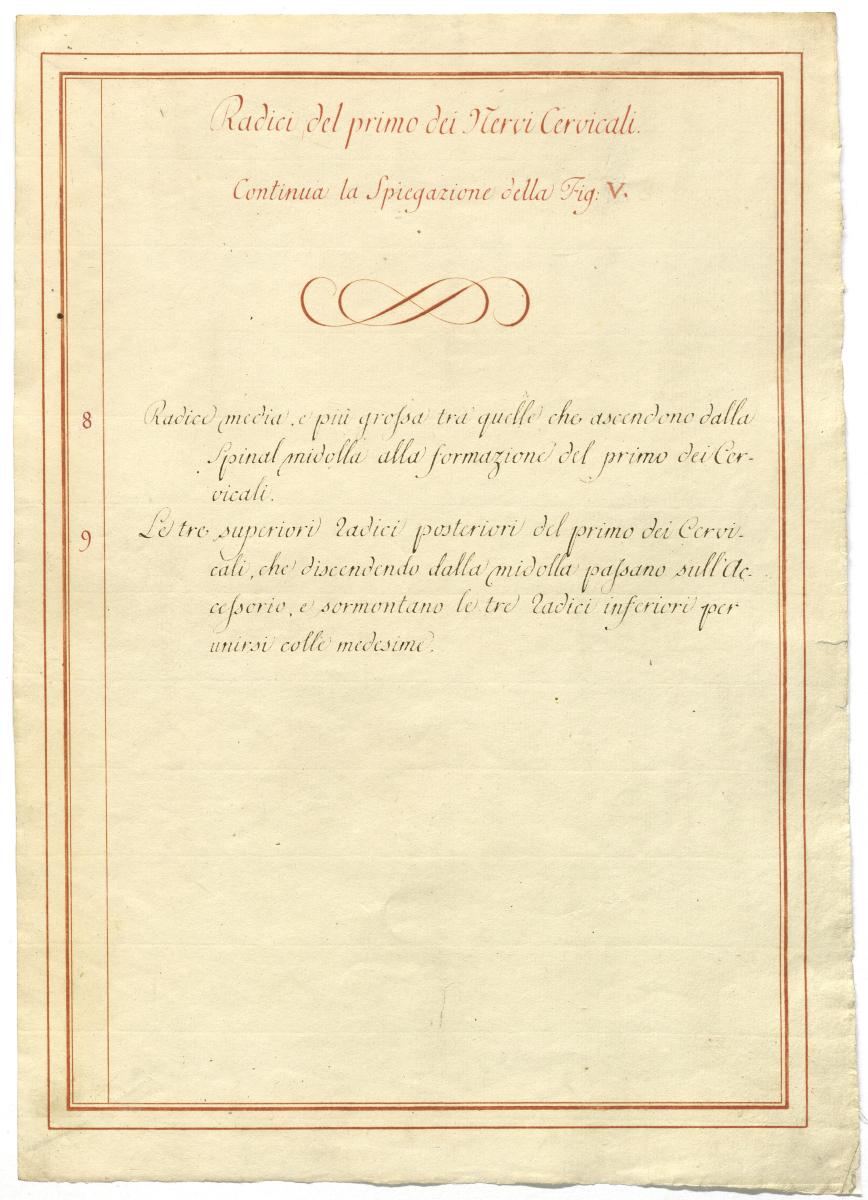 Radici del primo dei Nervi Cervicali.
Continua la Spiegazione della Fig: V.
8 Radice media, e più grossa tra quelle che ascendono dalla
Spinal midolla alla formazione del primo dei Cer-
vicali.
9 Le tre superiori radici posteriori del primo dei Cervi-
cali, che discendendo dalla midolla passano sull'Ac-
cessorio, e sormontano le tre radici inferiori per
unirsi colle medesime.